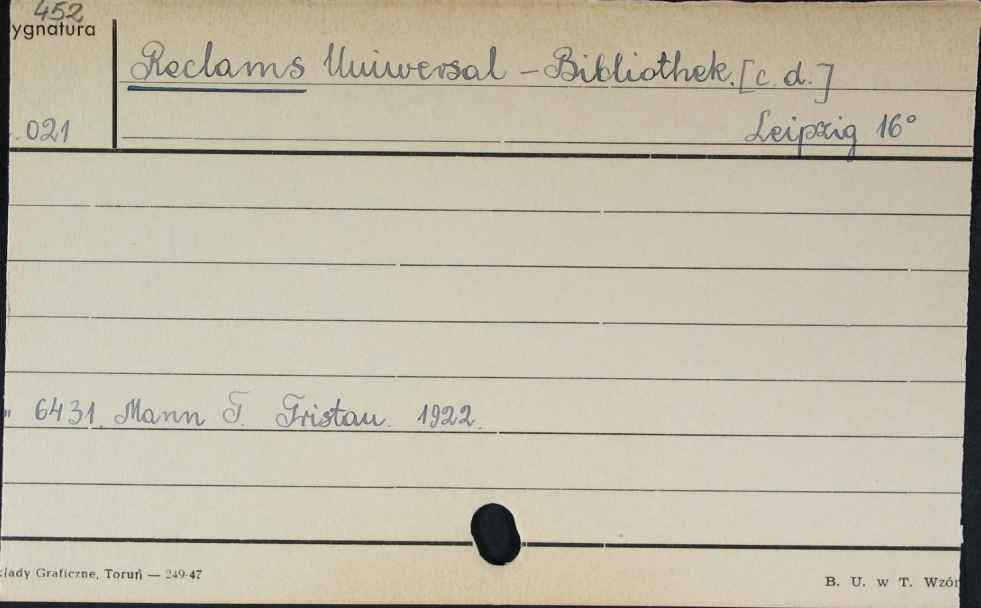 452
ygnatura
Reclams Universal - Bibliothek. [c. d.]
021
Leipzig 16°
" 6431. Mann T. Tristan. 1922.
łady Graficzne, Toruń — 249-47
B. U. w T. Wzór